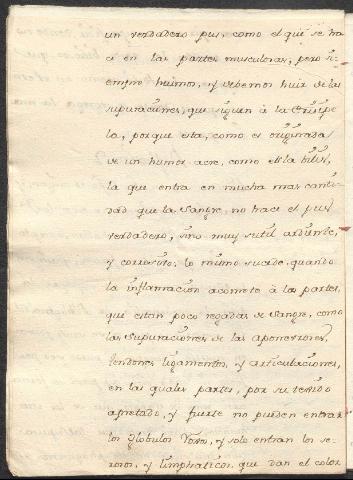 un verdadero pus, como el que se ha
ce en las partes musculares, pero si
empre huimos, y debemos huir de las
supuraciones, que siguen à la Erisipe
la, porque esta, como es originada
de un humor acre, como es la bilis,
la que entra en mucha mas canti
dad que la sangre, no hace el pus
verdadero, sino muy sutil ardiente,
y corrosivo; lo mismo sucede, quando
la inflamacion acomete à las partes,
que estan poco regadas de sangre, como
las supuraciones de las aponeuroses,
tendones, ligamentos, y articulaciones,
en las quales partes, por su texido
apretado, y fuerte no pueden entrar
los globulos roxos, y solo entran los se
rosos, y limphaticos, que dan el color